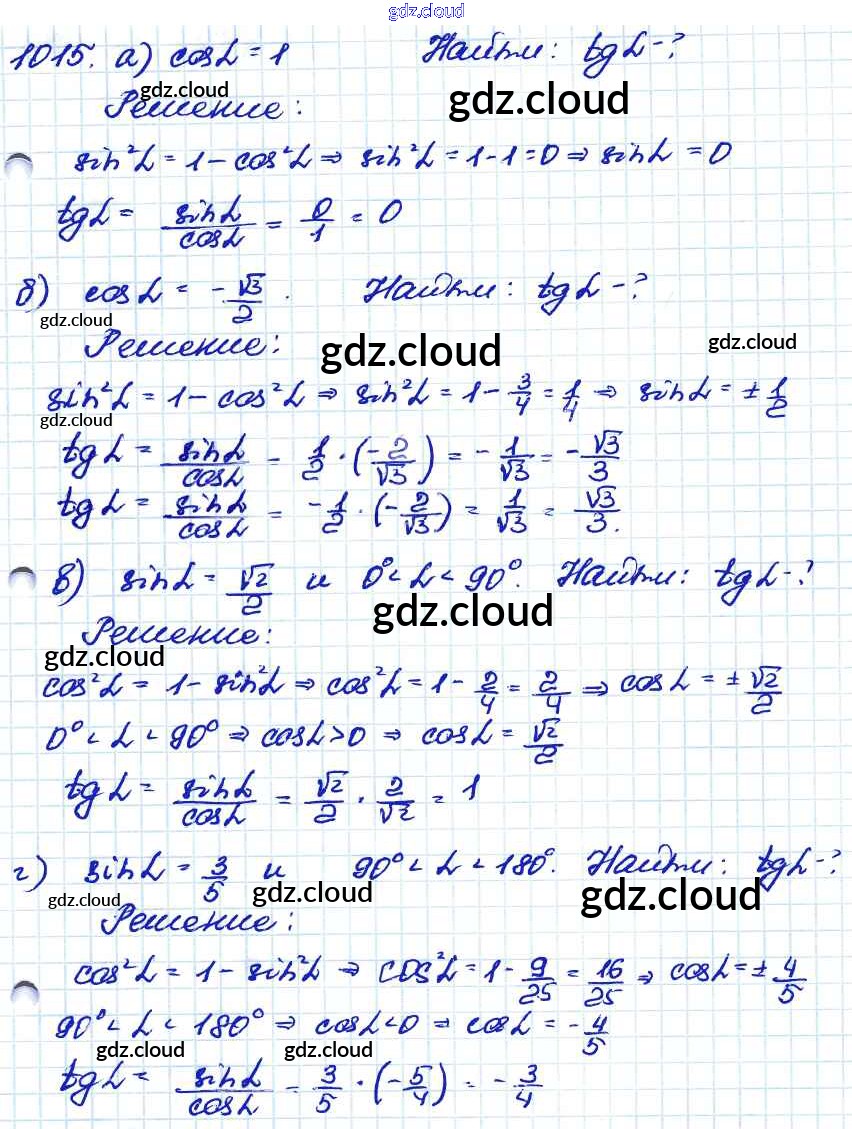 gdz.cloud
1015. а) cosα = 1 Найти: tgα - ?
gdz.cloud gdz.cloud
Решение:
sin²α = 1 - cos²α ⇒ sin²α = 1 - 1 = 0 ⇒ sinα = 0
tgα = sinα/cosα = 0/1 = 0
б) cosα = -√3/2. Найти: tgα - ?
gdz.cloud gdz.cloud gdz.cloud
Решение:
sin²α = 1 - cos²α ⇒ sin²α = 1 - 3/4 = 1/4 ⇒ sinα = ± 1/2
gdz.cloud
tgα = sinα/cosα = 1/2 · (-2/√3) = -1/√3 = -√3/3
tgα = sinα/cosα = -1/2 · (-2/√3) = 1/√3 = √3/3.
в) sinα = √2/2 и 0° < α < 90°. Найти: tgα - ?
gdz.cloud
Решение:
gdz.cloud
cos²α = 1 - sin²α ⇒ cos²α = 1 - 2/4 = 2/4 ⇒ cosα = ± √2/2
0° < α < 90° ⇒ cosα > 0 ⇒ cosα = √2/2
tgα = sinα/cosα = √2/2 · 2/√2 = 1
г) sinα = 3/5 и 90° < α < 180°. Найти: tgα - ?
gdz.cloud gdz.cloud gdz.cloud
Решение:
cos²α = 1 - sin²α ⇒ cos²α = 1 - 9/25 = 16/25 ⇒ cosα = ± 4/5
90° < α < 180° ⇒ cosα < 0 ⇒ cosα = -4/5
gdz.cloud gdz.cloud
tgα = sinα/cosα = 3/5 · (-5/4) = -3/4